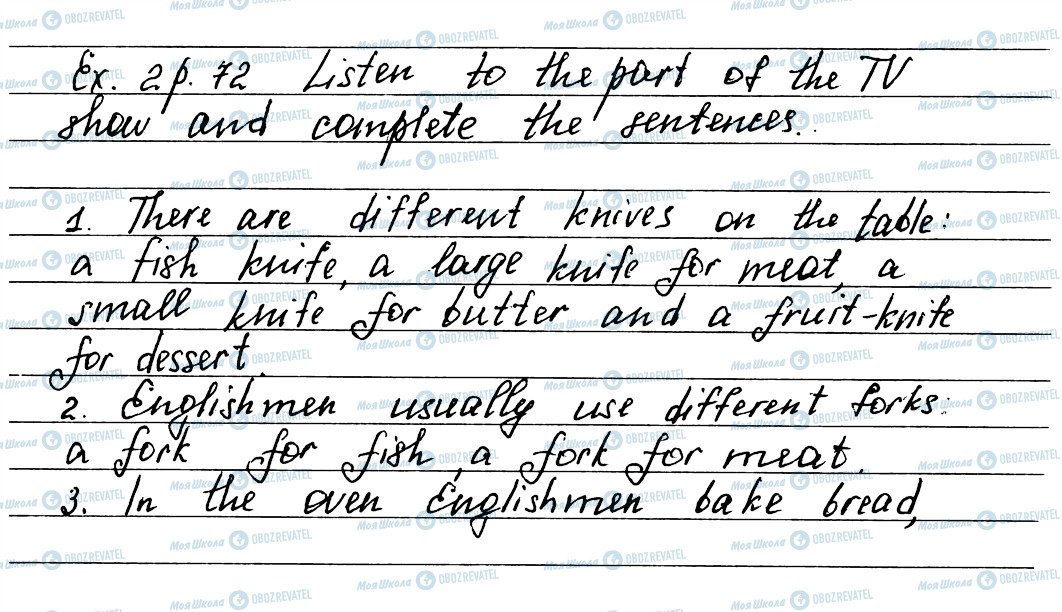 Ex. 2 p. 72 Listen to the part of the TV
show and complete the sentences.
1. There are different knives on the table:
a fish knife, a large knife for meat, a
small knife for butter and a fruit-knife
for dessert.
2. Englishmen usually use different forks:
a fork for fish, a fork for meat.
3. In the oven Englishmen bake bread,
МояШкола OBOZREVATEL